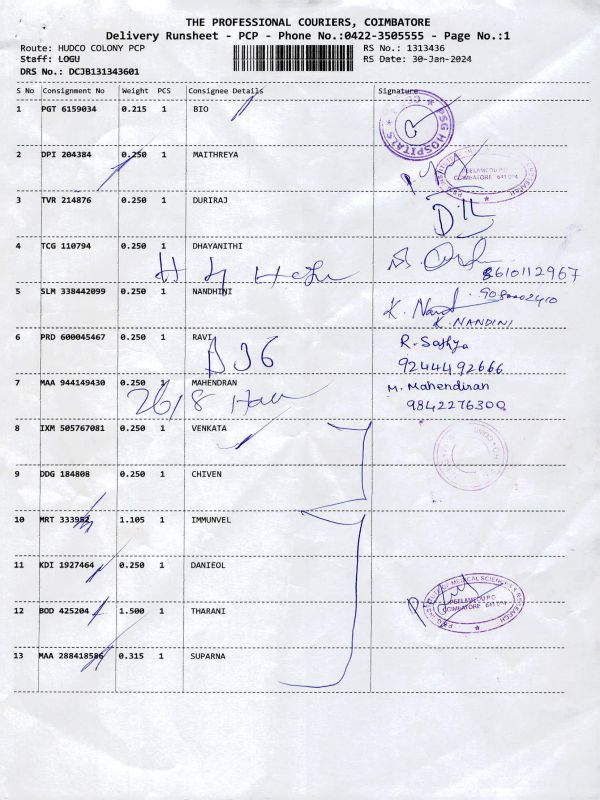 THE PROFESSIONAL COURIERS, COIMBATORE
Delivery Runsheet - PCP - Phone No.:0422-3505555 - Page No.:1
Route: HUDCO COLONY PCP RS No.: 1313436
Staff: LOGU RS Date: 30-Jan-2024
DRS No.: DCJB131343601
S No Consignment No Weight PCS Consignee Details Signature
1 PGT 6159034 0.215 1 BIO
PSG HOSPITALS
2 DPI 204384 0.250 1 MAITHREYA
PEELAMEDU P.O
COIMBATORE 641 004
3 TVR 214876 0.250 1 DURIRAJ
4 TCG 110794 0.250 1 DHAYANITHI
8610112967
5 SLM 338442099 0.250 1 NANDHINI
K. NANDINI
6 PRD 600045467 0.250 1 RAVI R. Sathya
9244492666
7 MAA 944149430 0.250 1 MAHENDRAN M. Mahendiran
26/8 9842276300
8 IXM 505767081 0.250 1 VENKATA
9 DDG 184808 0.250 1 CHIVEN
10 MRT 333952 1.105 1 IMMUNVEL
11 KDI 1927464 0.250 1 DANIEOL
12 BOD 425204 1.500 1 THARANI
PEELAMEDU P.O
COIMBATORE 641 004
13 MAA 288418586 0.315 1 SUPARNA